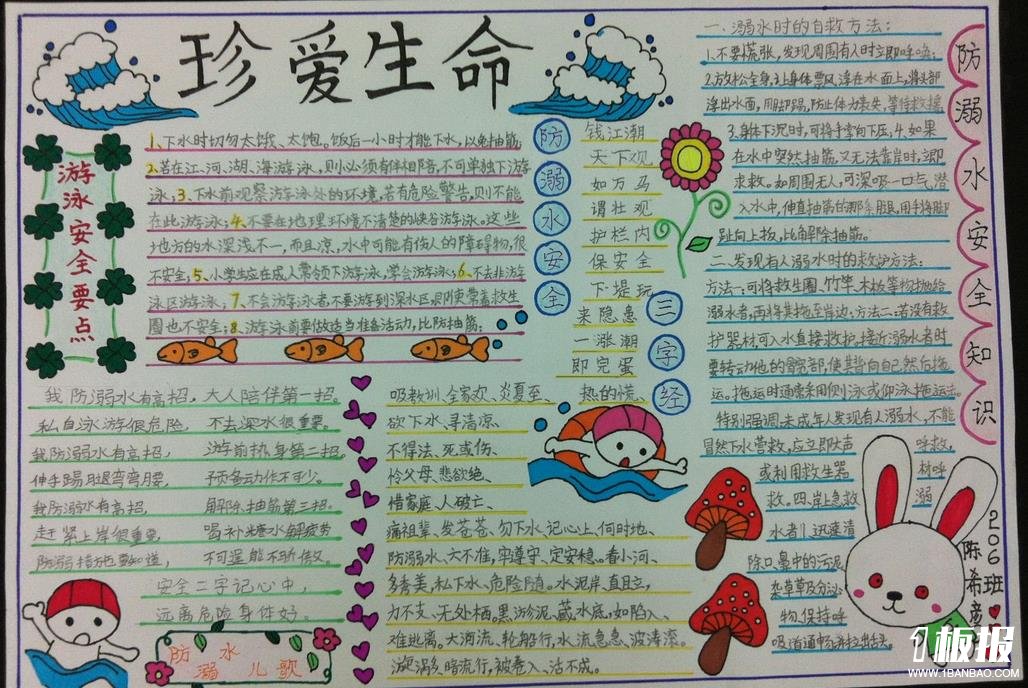 珍爱生命
游泳安全要点
1、下水时切勿太饿、太饱。饭后一小时才能下水,以免抽筋;
2、若在江、河、湖、海游泳,则必须有伴相陪,不可单独下游
泳;3、下水前观察游泳处的环境,若有危险警告,则不能
在此游泳;4、不要在地理环境不清楚的峡谷游泳。这些
地方的水深浅不一,而且凉,水中可能有伤人的障碍物,很
不安全;5、小学生应在成人带领下游泳,学会游泳;6、不去非游
泳区游泳;7、不会游泳者不要游到深水区,即使带着救生
圈也不安全;8、游泳前要做适当准备活动,比防抽筋;
防溺水安全
三字经
钱江潮
天下观
如万马
谓壮观
护栏内
保安全
下堤玩
来隐患
一涨潮
即完蛋
热的慌、
吸教训、全家欢、炎夏至、
欲下水、寻清凉、
不得法、死或伤、
怜父母、悲欲绝、
惜家庭、人破亡、
痛祖辈、发苍苍、勿下水、记心上、何时地、
防溺水、六不准,牢遵守、定安稳。看小河、
多秀美,私下水、危险随。水泥岸、直且立,
力不支、无处栖。黑淤泥、藏水底,如陷入、
难逃离。大海流、轮船行,水流急、波涛滚。
漩涡多、暗流行,被卷入、活不成。
我防溺水有高招,大人陪伴第一招。
私自泳游很危险,不去深水很重要。
我防溺水有高招,游前热身第二招。
伸手踢腿弯弯腰,预备动作不可少。
我防溺水有高招,解除抽筋第三招。
赶紧上岸很重要,喝补糖水解疲劳
防溺措施要知道,不可逞能不骄傲。
安全二字记心中,
远离危险身体好。
防溺水儿歌
防溺水安全知识
一、溺水时的自救方法:
1、不要慌张,发现周围有人时立即呼唤;
2、放松全身,让身体飘浮在水面上,将头部
浮出水面,用脚踢,防止体力丧失,等待救援
3、身体下沉时,可将手掌向下压;4、如果
在水中突然抽筋,又无法靠岸时,立即
求救。如周围无人,可深吸一口气潜
入水中,伸直抽筋的那条腿,用手将脚
趾向上扳,比解除抽筋。
二、发现有人溺水时的救护方法:
方法一、可将救生圈、竹竿、木板等物抛给
溺水者,再将其拖至岸边;方法二:若没有救
护器材,可入水直接救护。接近溺水者时
要转动他的髋部,使其背向自己,然后拖
运。拖运时通常采用侧泳或仰泳拖运法。
特别强调:未成年人发现有人溺水,不能
冒然下水营救,应立即大声呼救,
或利用救生器材呼
救。四、岸上急救溺
水者1、迅速清
除口、鼻中的污泥、
杂草及分泌
物,保持呼
吸道通畅,并拉出舌头。
206班♥
陈希
1板报
WWW.1BANBAO.COM